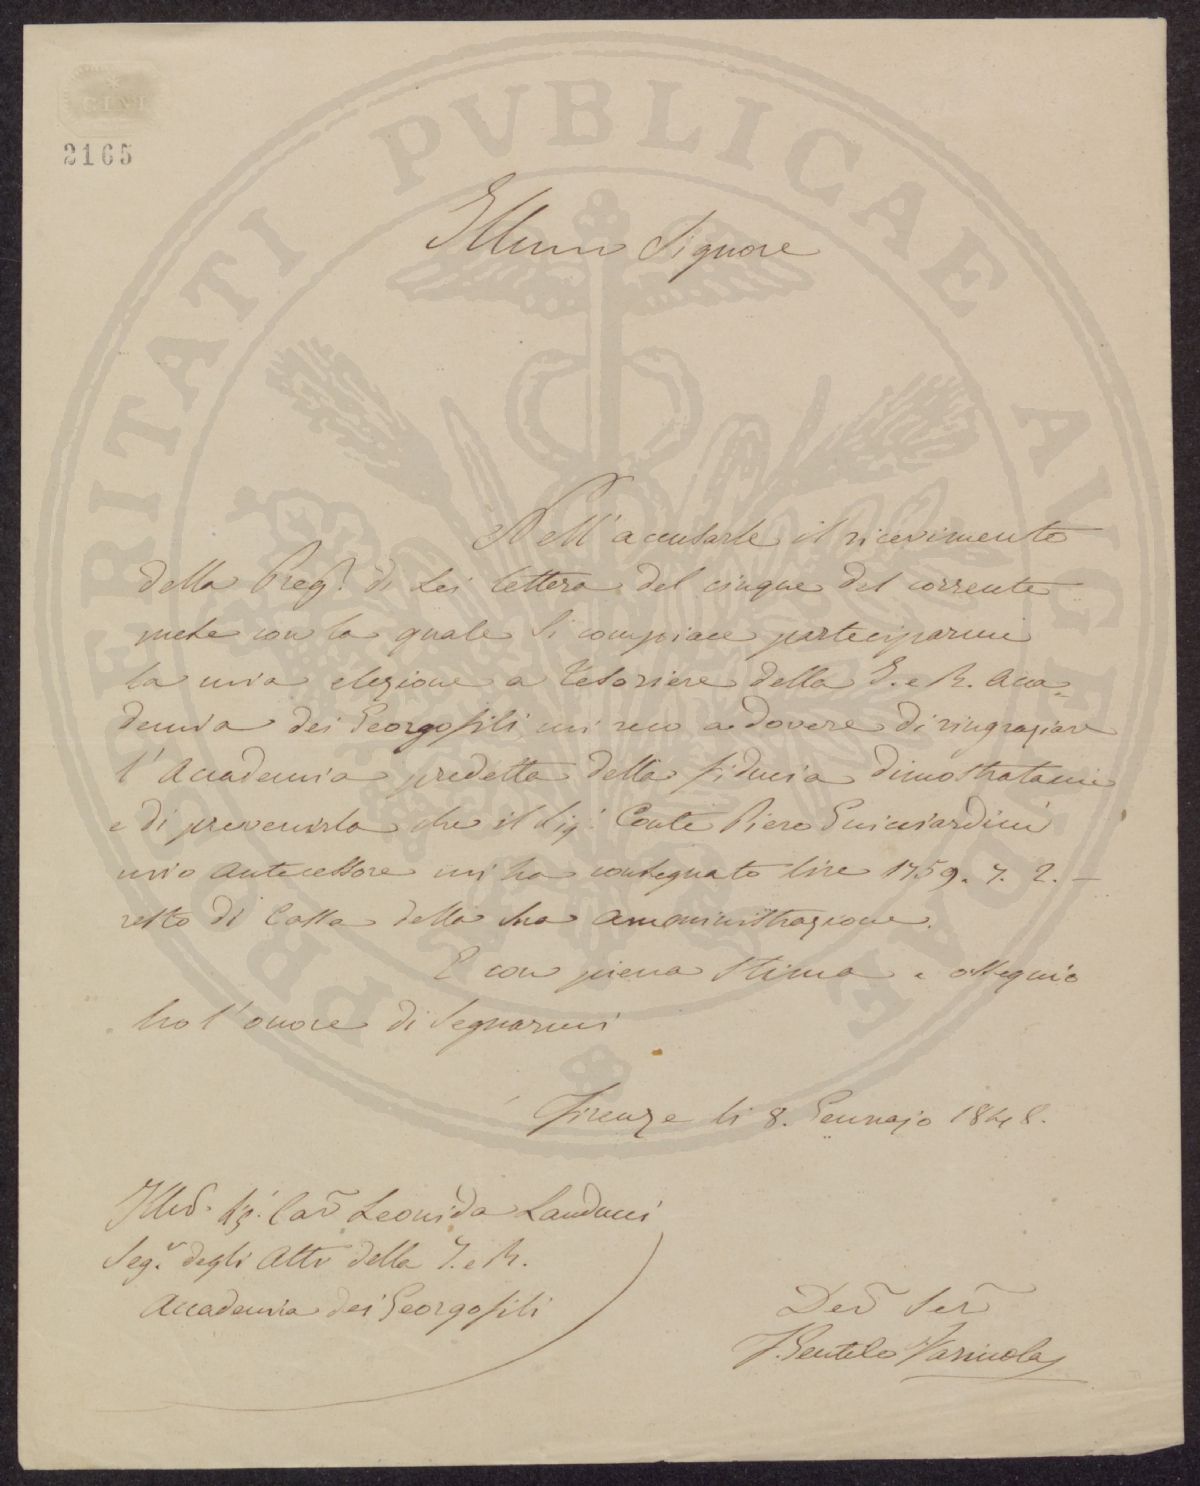 2165
Illmo Signore
Nell' accusarle il ricevimento
della Preg.a di Lei lettera del cinque del corrente
mese con la quale si compiace parteciparmi
la mia elezione a Tesoriere della I. e R. Acca=
demia dei Georgofili, mi reco a dovere di ringraziare
l'Accademia predetta della fiducia dimostratami
e di prevenirla che il Sig.r Conte Piero Guicciardini
mio antecessore mi ha consegnato lire 1759. 7. 2. —
resto di Cassa della sua amministrazione.
E con piena stima e ossequio
ho l'onore di segnarmi
Firenze li 8. Gennajo 1848.
Illmo. Sig.r Cav Leonida Landucci
Seg.o degli Atti della I. e R.
Accademia dei Georgofili
Dev Ser
F. Gentile Farinola
PROSPERITATI PVBLICAE AVGENDAE